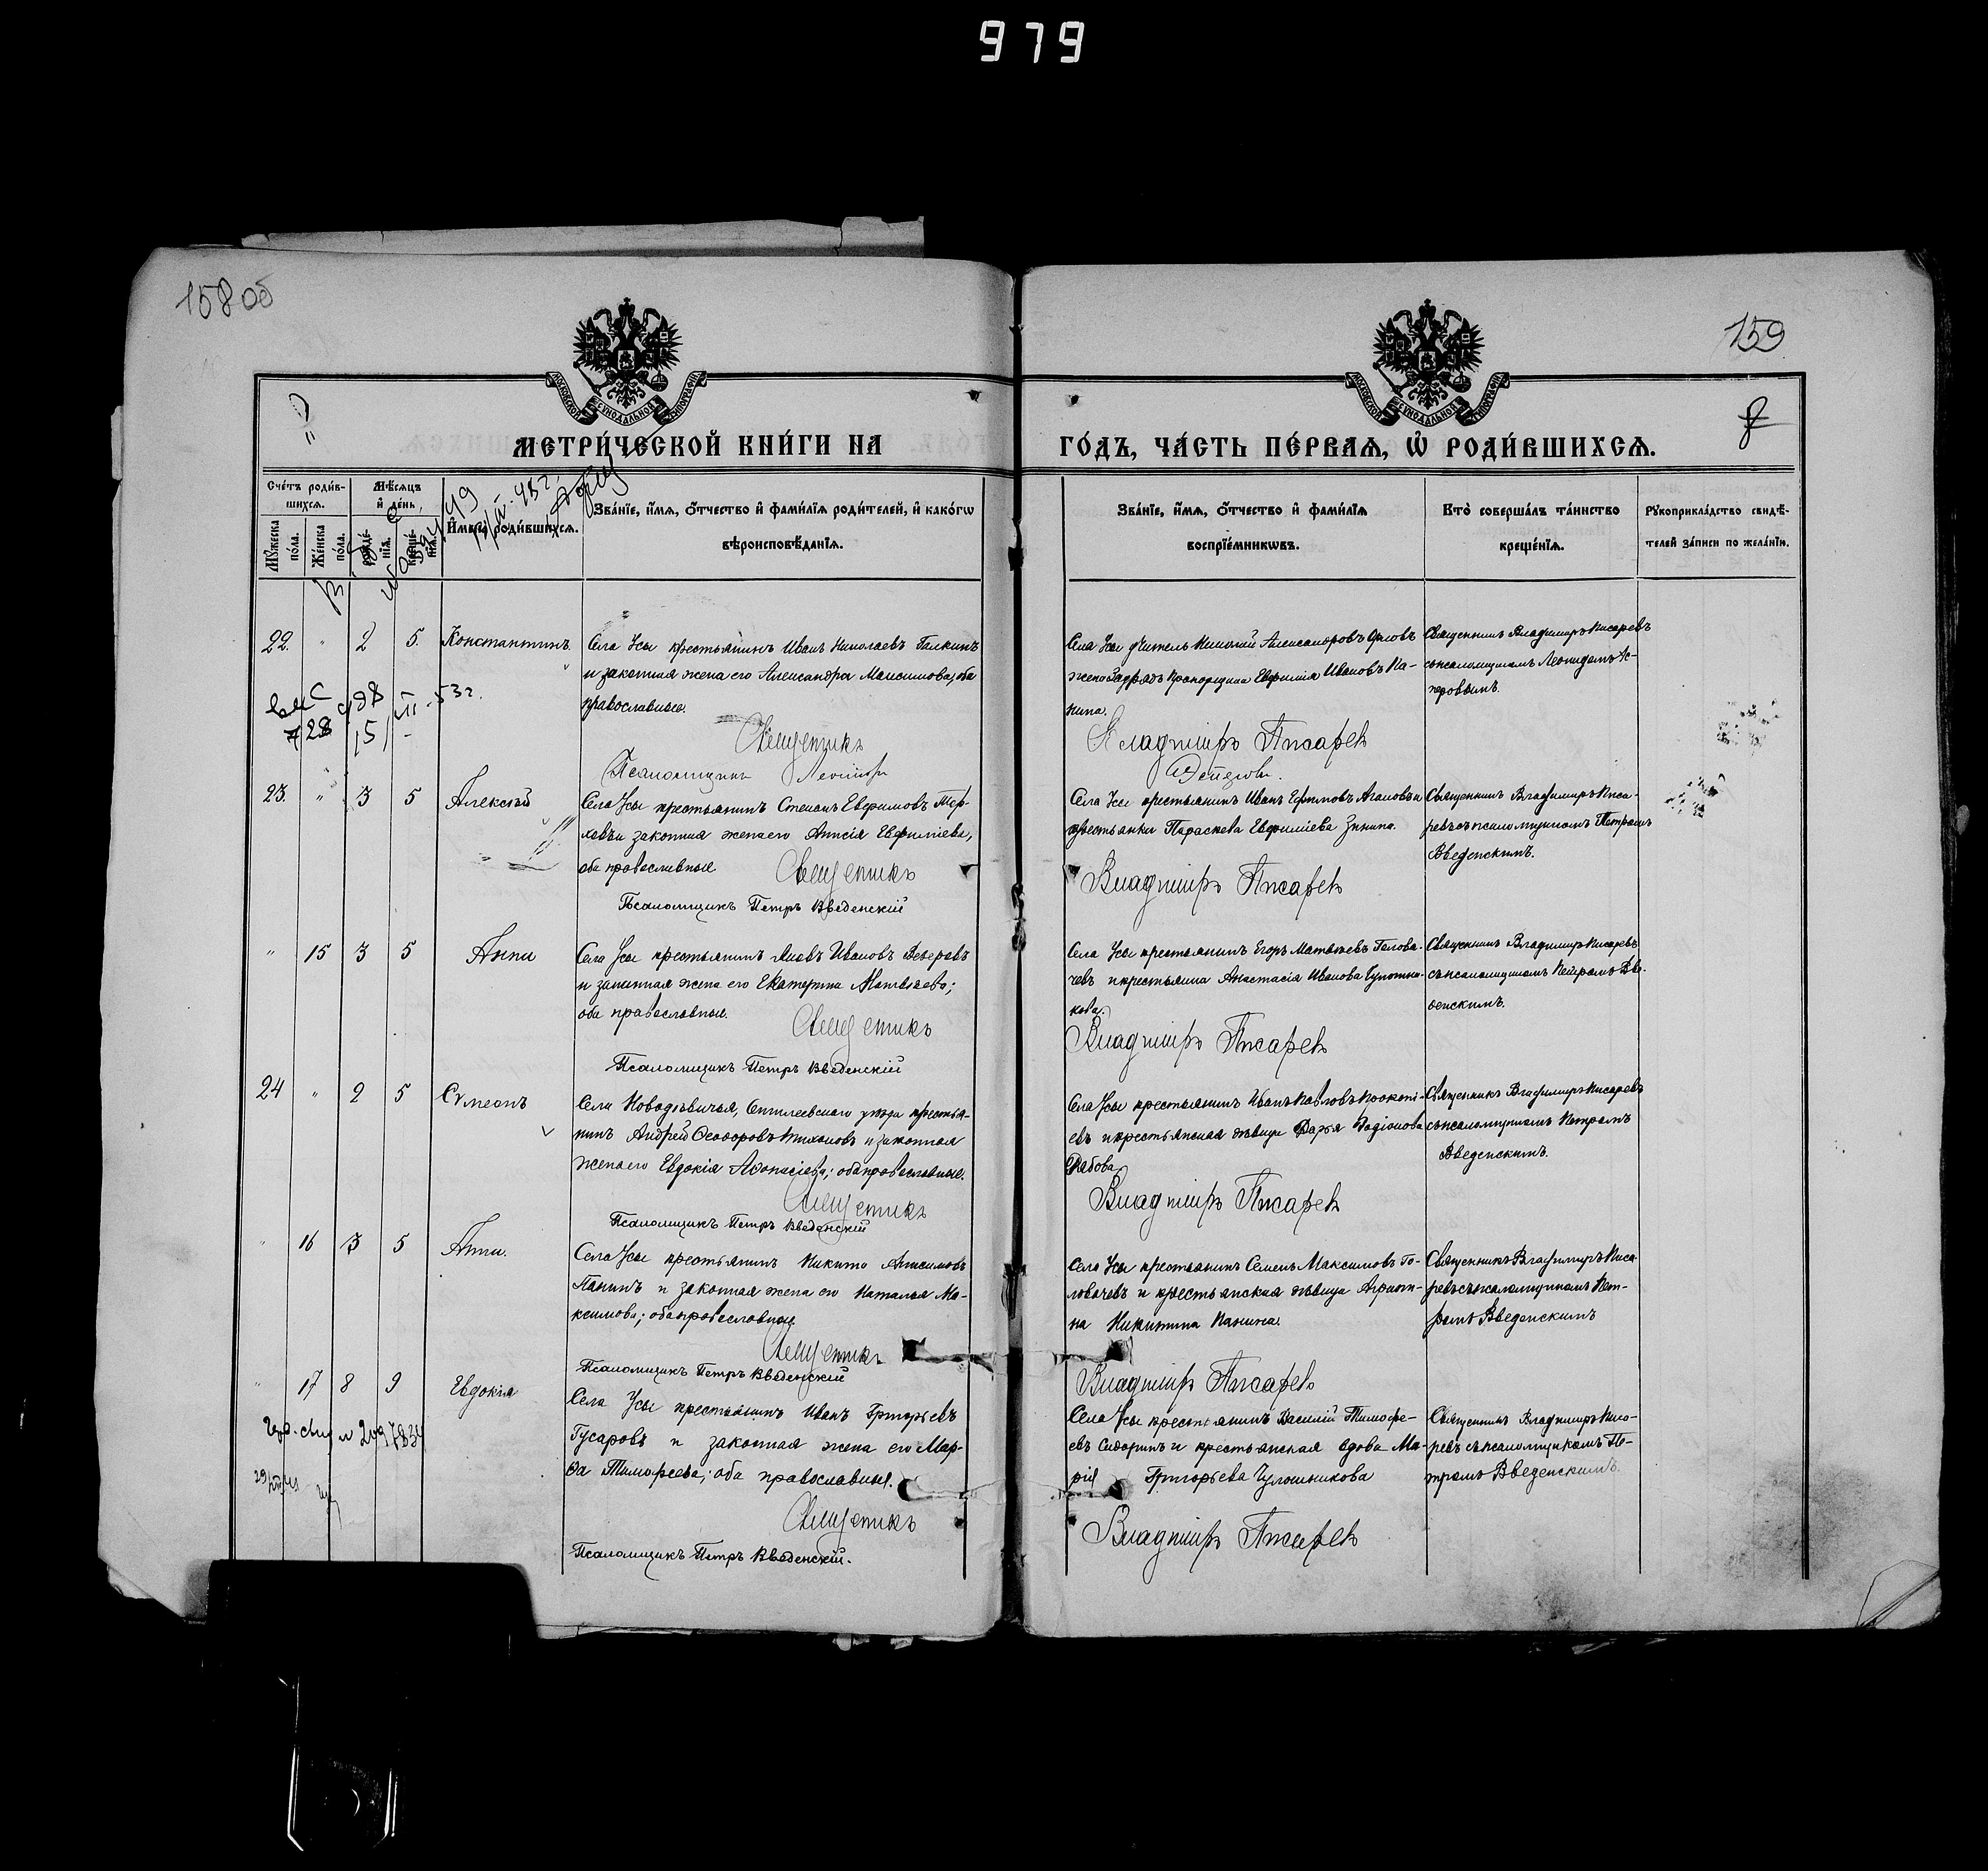 979
158 об
159
МОСКОВСКОЙ СѴНОДАЛЬНОЙ ТИПОГРАФІИ
МОСКОВСКОЙ СѴНОДАЛЬНОЙ ТИПОГРАФІИ
МЕТРИ́ЧЕСКОЙ КНИ́ГИ НА
ГО́ДЪ, ЧА́СТЬ ПЕ́РВАЯ, Ѡ҆ РОДИ́ВШИХСЯ.
Сче́тъ роди́в-
шихся.
Мꙋ́жеска по́ла.
Же́нска по́ла.
Мѣ́сяцъ
и҆ де́нь,
рожде́-
нїя.
креще́-
нїя.
И҆мена̀ роди́вшихся.
Зва́нїе, и҆́мя, ѻ҆́тчество и҆ фами́лїя роди́телей, и҆ како́гѡ
вѣроисповѣ́данїя.
Зва́нїе, и҆́мя, ѻ҆́тчество и҆ фами́лїя
воспрїе́мникѡвъ.
Кто̀ соверша́лъ та́инство
креще́нїя.
Рꙋкоприкла́дство свидѣ́-
телей за́писи по жела́нїю.
22. " 2 5. Константинъ.
Села Усы крестьянинъ Иванъ Николаевъ Галкинъ
и законная жена его Александра Максимова, оба
православные.
Священникъ
Псаломщикъ
Села Усы учитель Александровъ Орловъ
Евфимія Иванов Па-
нина.
Владиміръ Писаревъ
Священникъ Владиміръ Писаревъ
съ псаломщикомъ Леонидомъ
23. " 3 5 Алексѣй
Села Усы крестьянинъ Степанъ Евфимовъ
и законная жена его Анисія Евфиміева,
оба православные
Священникъ
Псаломщикъ Петръ Введенскій
Села Усы крестьянинъ Иванъ Ефимовъ и
крестьянка Параскева Евфиміева Зинина.
Владиміръ Писаревъ
Священникъ Владиміръ Писа-
ревъ съ псаломщикомъ Петромъ
Введенскимъ.
" 15 3 5 Анна
Села Усы крестьянинъ Яковъ Ивановъ
и законная жена его Екатерина Матвѣева;
оба православные.
Священникъ
Псаломщикъ Петръ Введенскій
Села Усы крестьянинъ Егоръ Матвѣевъ Голова-
чевъ и крестьянка Анастасія Иванова
кова.
Владиміръ Писаревъ
Священникъ Владиміръ Писаревъ
съ псаломщикомъ Петромъ Вве-
денскимъ.
24 " 2 5 Сѵмеонъ
Села Новодѣвичья, Сенгилеевскаго уѣзда крестья-
нинъ Андрей Ѳеодоровъ Тихоновъ и законная
жена его Евдокія Аѳонасіева; оба православные.
Священникъ
Псаломщикъ Петръ Введенскій
Села Усы крестьянинъ Иванъ Павловъ Прокопі-
евъ и крестьянская дѣвица Дарья Родіонова
Рябова
Владиміръ Писаревъ
Священникъ Владиміръ Писаревъ
съ псаломщикомъ Петромъ
Введенскимъ.
" 16 3 5 Анна.
Села Усы крестьянинъ Никита Анисимовъ
Панинъ и законная жена его Наталья Ма-
ксимова; оба православные
Священникъ
Псаломщикъ Петръ Введенскій
Села Усы крестьянинъ Семенъ Максимовъ Го-
ловачевъ и крестьянская дѣвица Агрипи-
на Никитина Панина.
Владиміръ Писаревъ
Священникъ Владиміръ Писа-
ревъ съ псаломщикомъ Пет-
ромъ Введенскимъ
" 17 8 9 Евдокія
Села Усы крестьянинъ Иванъ Григорьевъ
Гусаровъ и законная жена его Мар-
ѳа Тимофеева; оба православные.
Священникъ
Псаломщикъ Петръ Введенскій.
Села Усы крестьянинъ Василій Тимофе-
евъ Сидоринъ и крестьянская вдова Ма-
рія Григорьева Чулошникова
Владиміръ Писаревъ
Священникъ Владиміръ Писа-
ревъ съ псаломщикомъ Пе-
тромъ Введенскимъ.